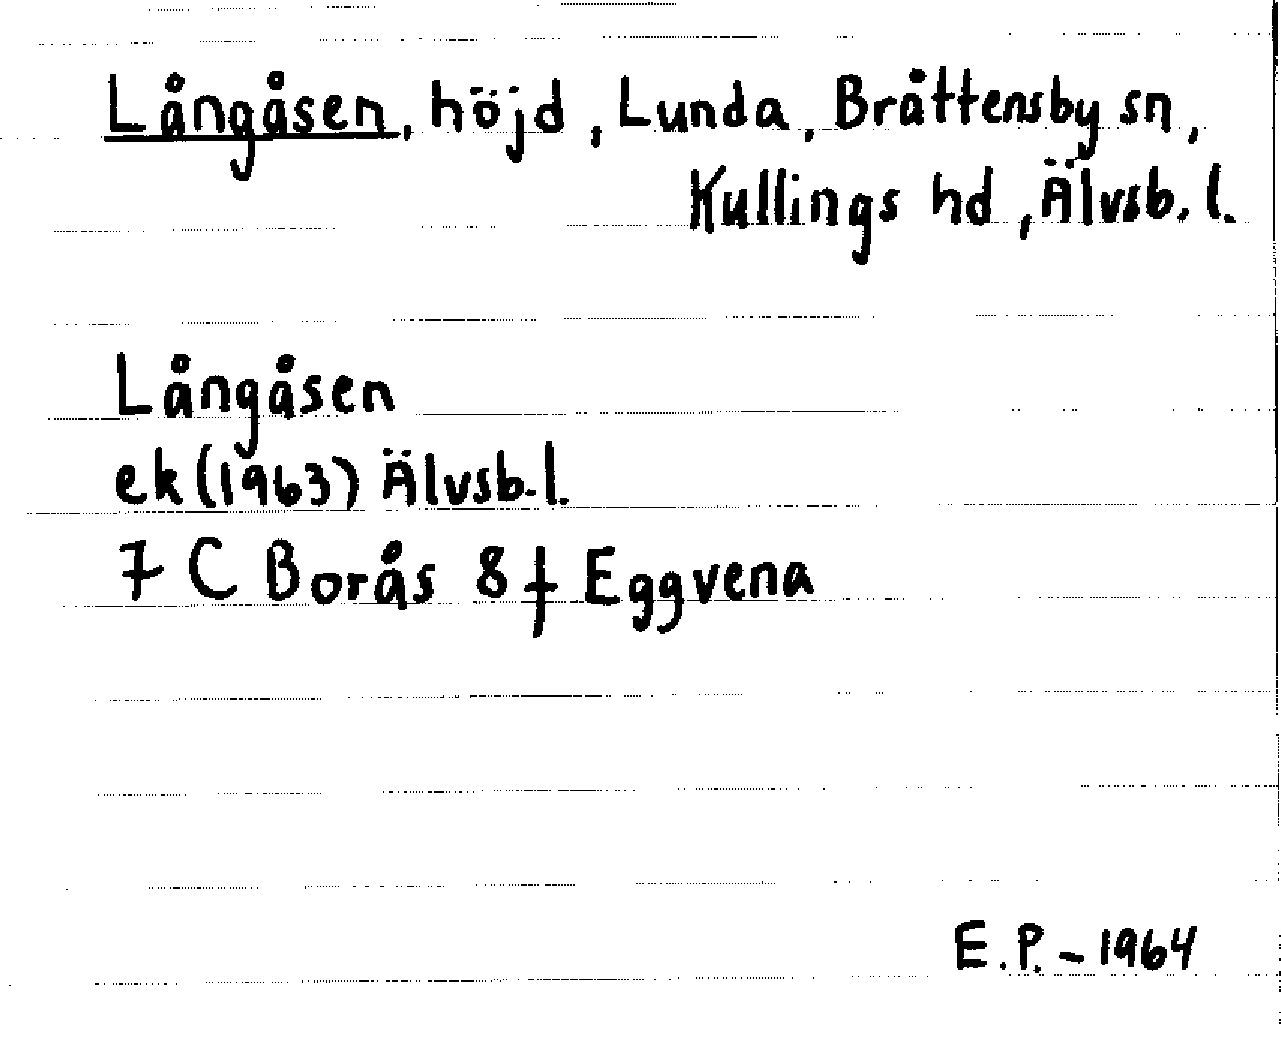 Långåsen, höjd, Lunda, Bråttensby sn,
Kullings hd, Älvsb. l.
Långåsen
ek (1963) Älvsb. l.
7 C Borås 8 f Eggvena
E.P. - 1964